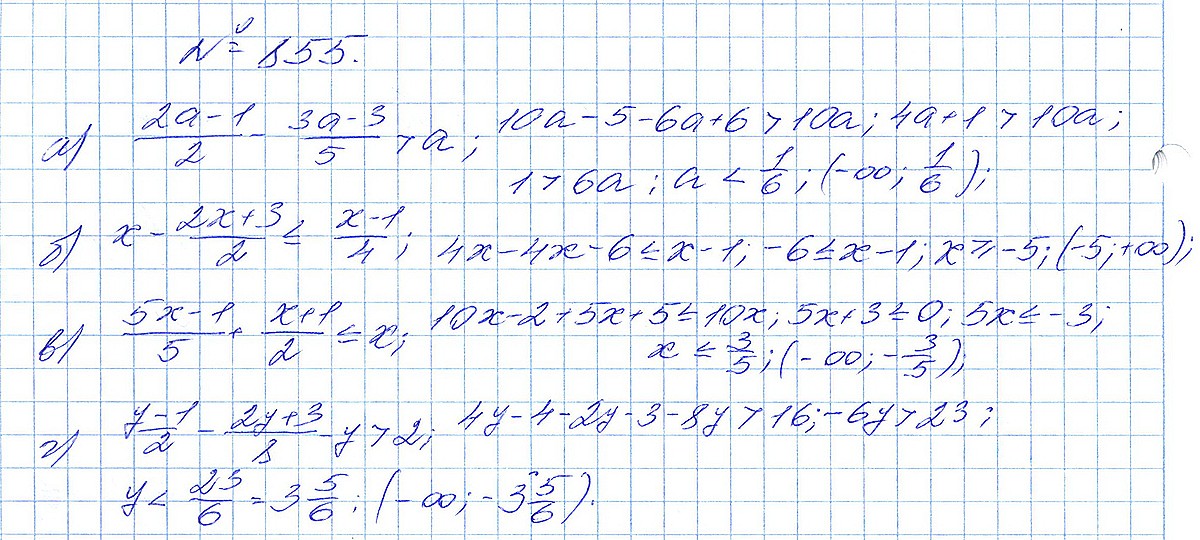 № 855.
а) (2a-1)/2 - (3a-3)/5 > a; 10a-5-6a+6>10a; 4a+1>10a;
1>6a; a < 1/6; (-∞; 1/6);
б) x - (2x+3)/2 ≤ (x-1)/4; 4x-4x-6≤x-1; -6≤x-1; x≥-5; (-5;+∞);
в) (5x-1)/5 + (x+1)/2 ≤ x; 10x-2+5x+5≤10x; 5x+3≤0; 5x≤-3;
x ≤ 3/5; (-∞; -3/5);
г) (y-1)/2 - (2y+3)/8 - y > 2; 4y-4-2y-3-8y>16; -6y>23;
y < 23/6 = 3 5/6; (-∞; -3 5/6).